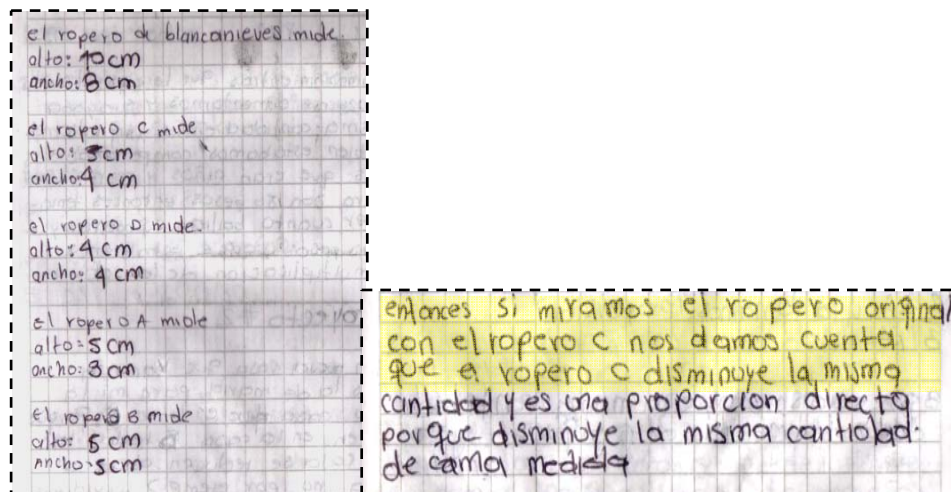 el ropero de blancanieves mide.
alto: 10 cm
ancho: 8 cm
el ropero C mide
alto: 5cm
ancho: 4 cm
el ropero D mide.
alto: 4 cm
ancho: 4 cm
el ropero A mide
alto: 5 cm
ancho: 3 cm
el ropero B mide
alto: 5 cm
Ancho: 5 cm
entonces si miramos el ropero original
con el ropero C nos damos cuenta
que el ropero C disminuye la misma
cantidad y es una proporcion directa
porque disminuye la misma cantidad.
de cama medida